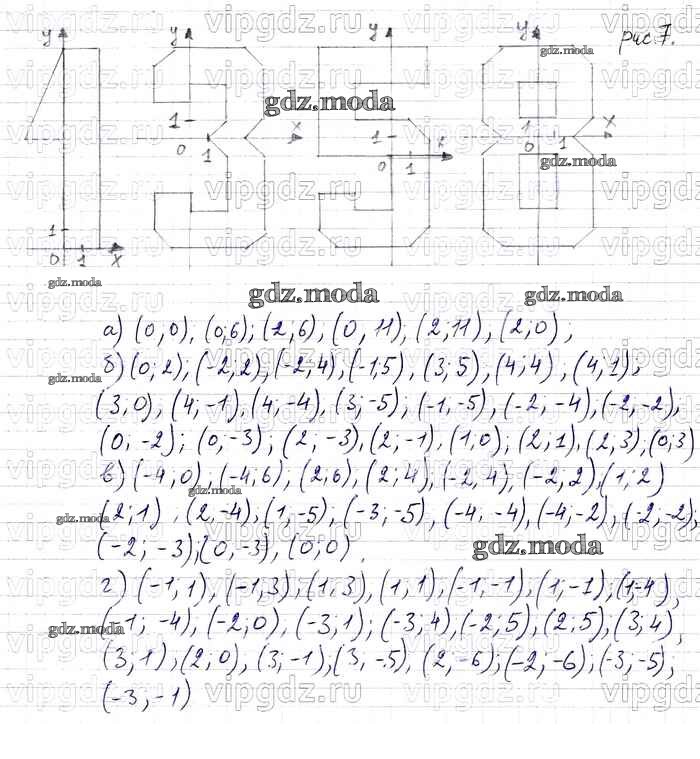 рис. 7.
y y y y
1 1 1
x x x
0 1 0 1 0 1
1
0 1 x
а) (0,0), (0;6); (2;6), (0, 11), (2,11), (2;0);
б) (0,2); (-2;2), (-2;4), (-1;5), (3;5), (4;4), (4,1),
(3,0), (4;-1), (4,-4), (3;-5); (-1,-5), (-2,-4), (-2,-2),
(0,-2); (0,-3); (2,-3), (2;-1), (1,0); (2,1), (2,3), (0,3)
в) (-4;0), (-4;6), (2;6), (2;4), (-2,4), (-2;2), (1;2)
(2;1), (2,-4), (1,-5), (-3;-5), (-4,-4), (-4;-2), (-2,-2);
(-2;-3); (0,-3), (0;0)
г) (-1,1), (-1,3), (1,3), (1,1), (-1,-1), (1;-1); (1;-4),
(-1;-4), (-2,0), (-3,1); (-3;4), (-2;5), (2,5); (3;4),
(3,1), (2,0), (3;-1), (3,-5), (2,-6); (-2;-6); (-3;-5),
(-3,-1)
gdz.moda
vipgdz.ru